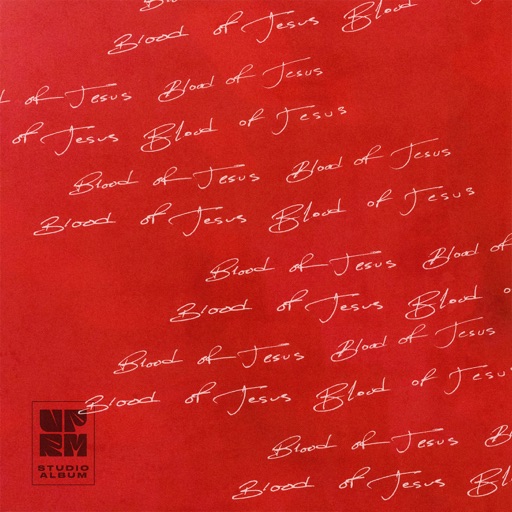 Blood of Jesus Blood
of Jesus Blood of Jesus
of Jesus Blood of Jesus
Blood of Jesus Blood of Jesus
Blood of Jesus Blood of Jesus
Blood of Jesus Blood of
Blood of Jesus Blood
Blood of Jesus Blood of Jesus
Blood of Jesus Blood of Jesus
Blood of Jesus
Blood of Jesus Blood
UPRM
STUDIO
ALBUM